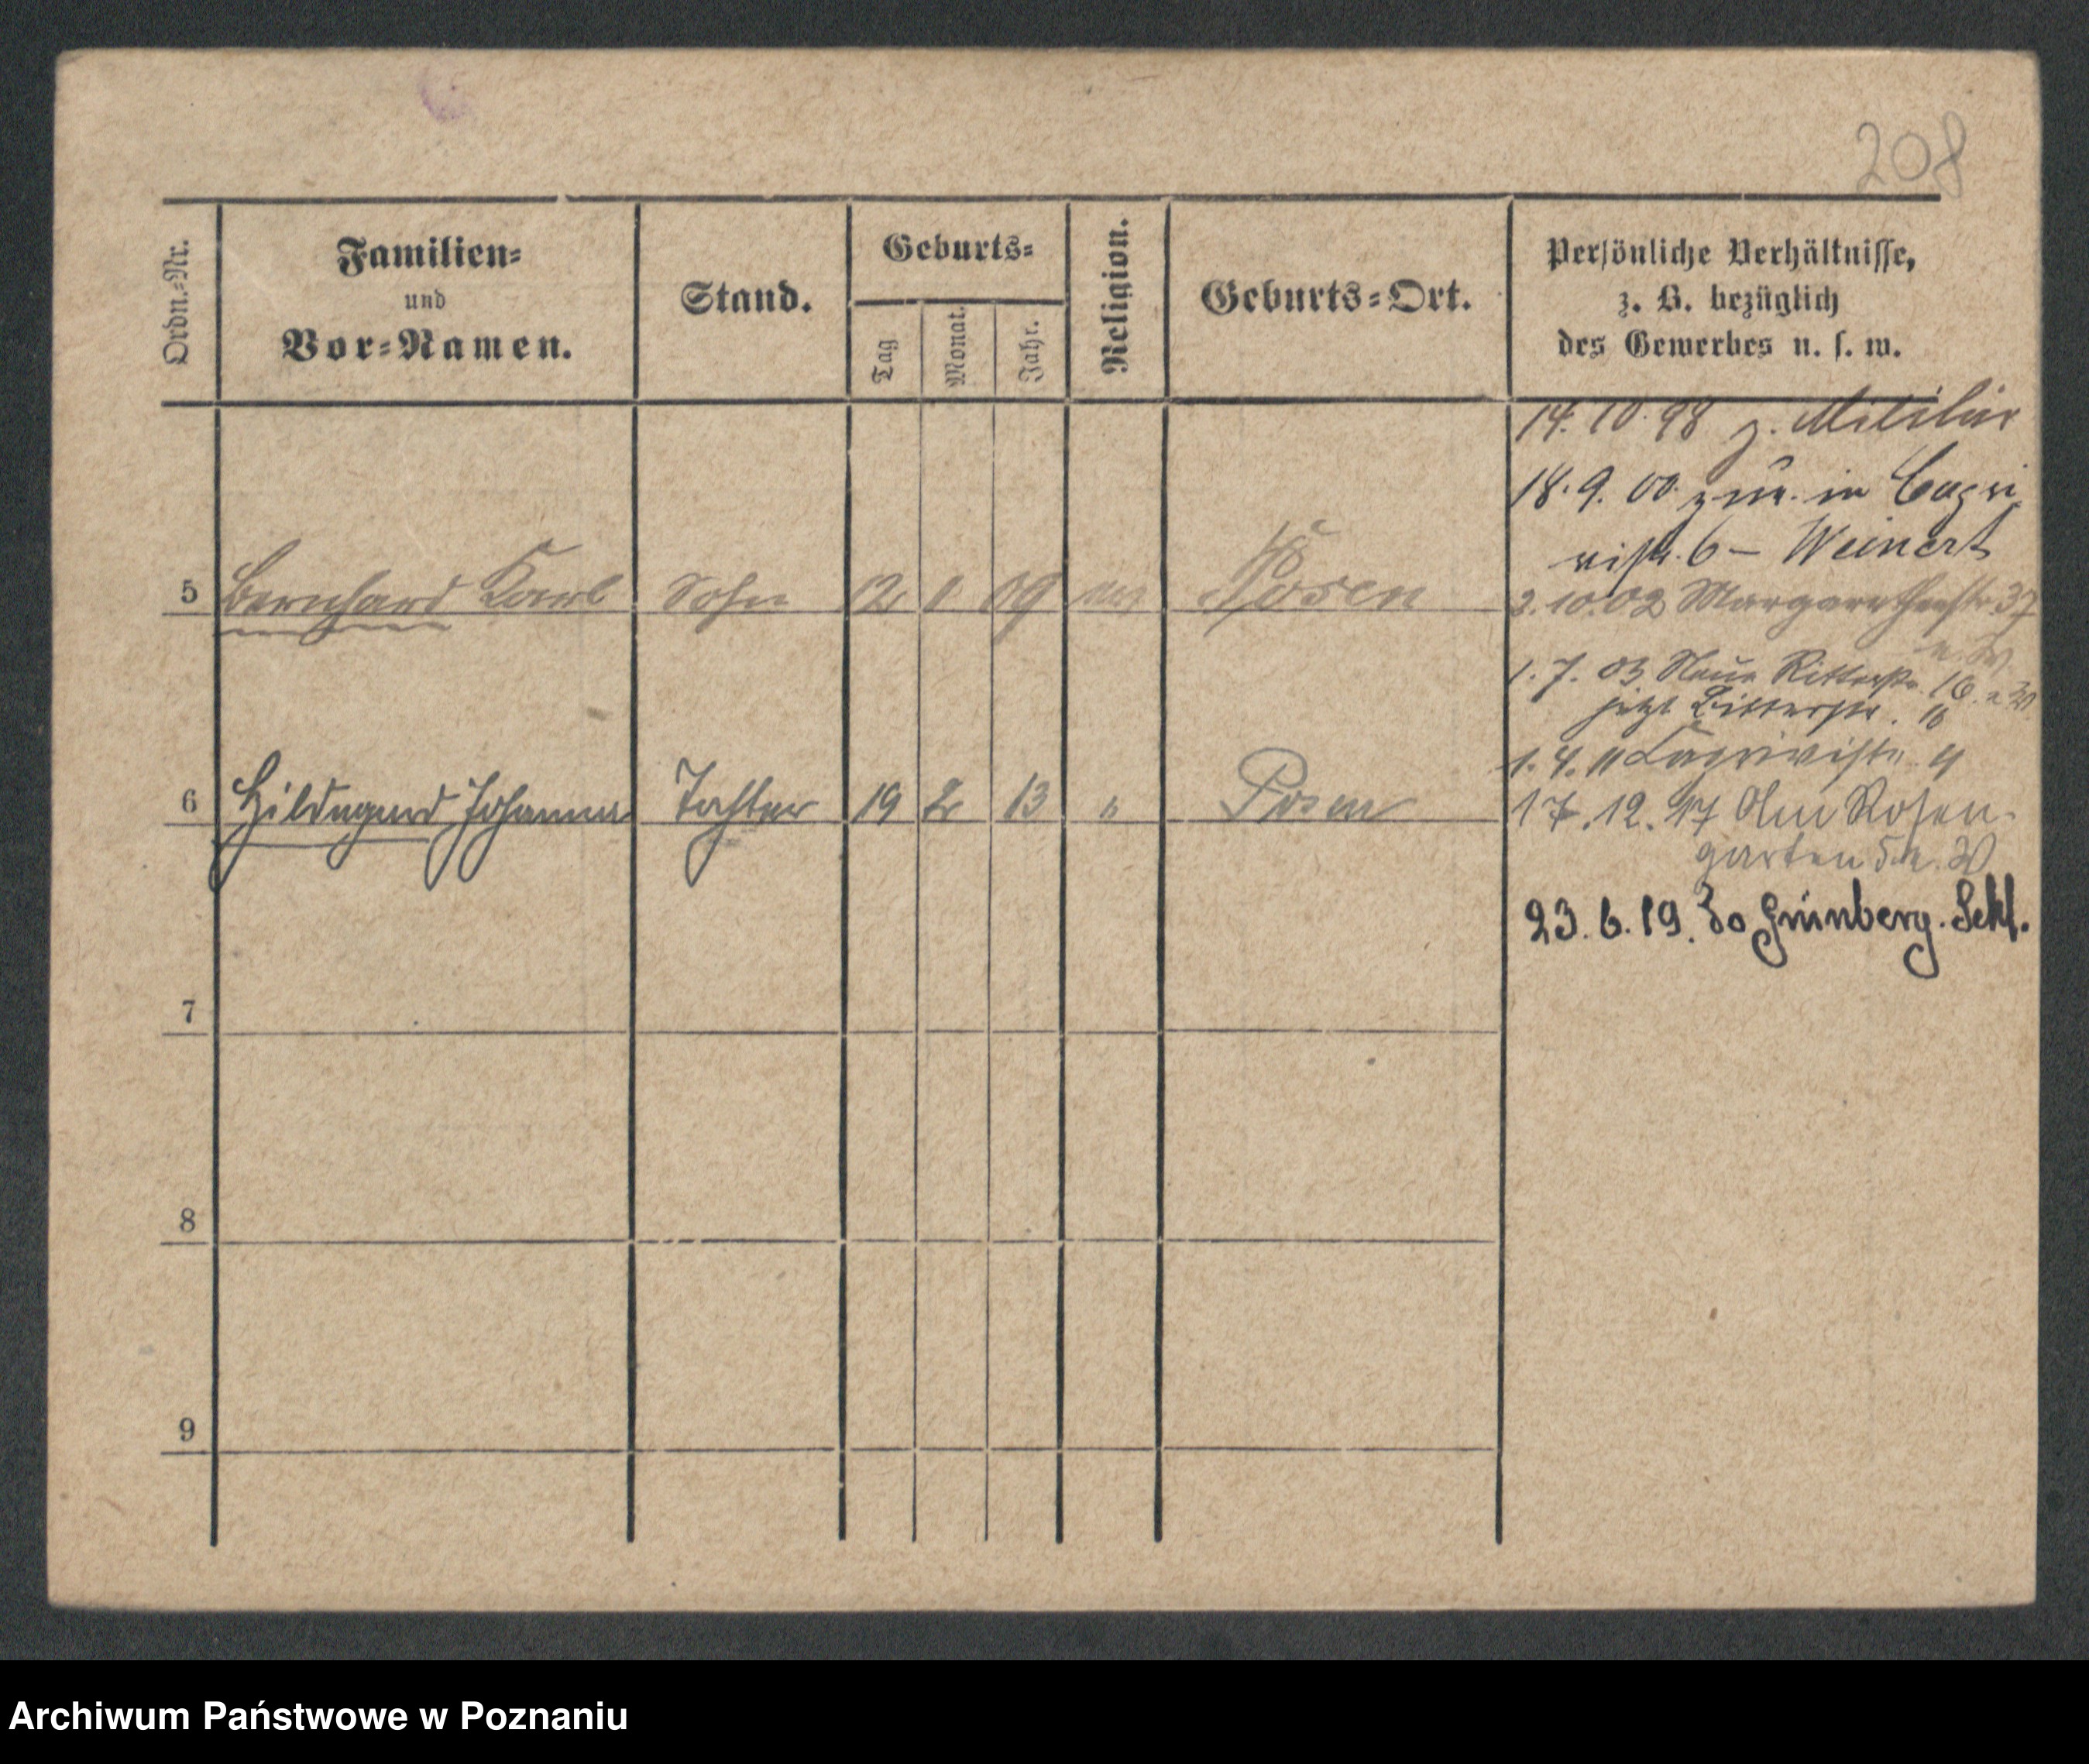 208
Ordn.-Nr.
Familien-
und
Vor-Namen.
Stand.
Geburts-
Tag
Monat.
Jahr.
Religion.
Geburts-Ort.
Persönliche Verhältnisse,
z. B. bezüglich
des Gewerbes u. s. w.
14. 10. 98 z. Militär
18. 9. 00. zur. in
6 – Weinert
5 Bernhard Karl Sohn 12 09 Posen
2. 10. 02 Margarethenstr. 37
u. W.
1. 7. 03 Neue Ritterstr. 16. u. W.
jetzt Ritterstr. 16
1. 4. 11
6 Hildegard Johanna Tochter 19 2 13 " Posen
17. 12. 17 Am Rosen-
garten 5 u. W
23. 6. 19. Grünberg. Schl.
7
8
9
Archiwum Państwowe w Poznaniu